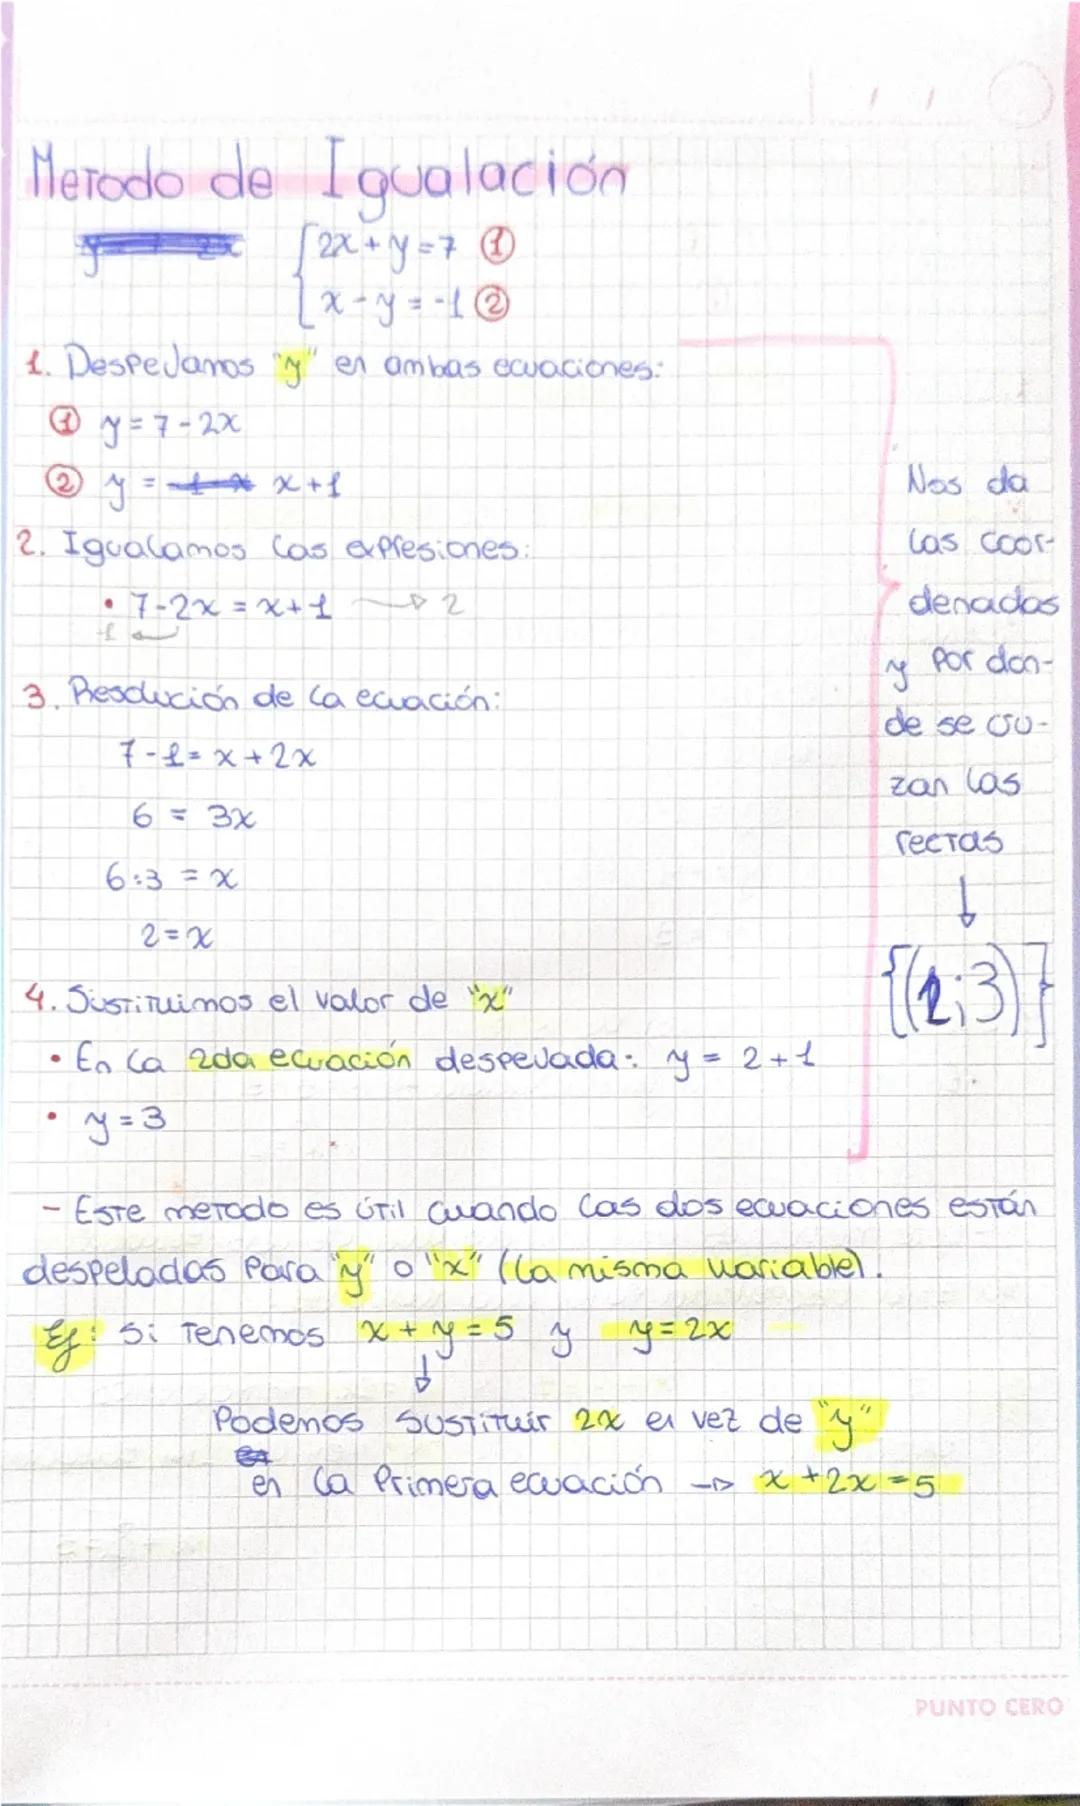 Metodo de Igualación
2x + y = 7 ①
x - y = -1 ②
1. Despejamos "y" en ambas ecuaciones:
① y = 7 - 2x
② y = x + 1
2. Igualamos las expresiones:
• 7 - 2x = x + 1 → 2
3. Resolución de la ecuación:
7 - 1 = x + 2x
6 = 3x
6 : 3 = x
2 = x
4. Sustituimos el valor de "x"
• En la 2da ecuación despejada: y = 2 + 1
• y = 3
Nos da
las coor-
denadas
y por don-
de se cru-
zan las
rectas
↓
{(2;3)}
- Este metodo es útil cuando las dos ecuaciones están
despejadas para "y" o "x" (la misma variable).
Ej: Si tenemos x + y = 5 y y = 2x
↓
Podemos sustituir 2x en vez de "y"
en la primera ecuación → x + 2x = 5
PUNTO CERO